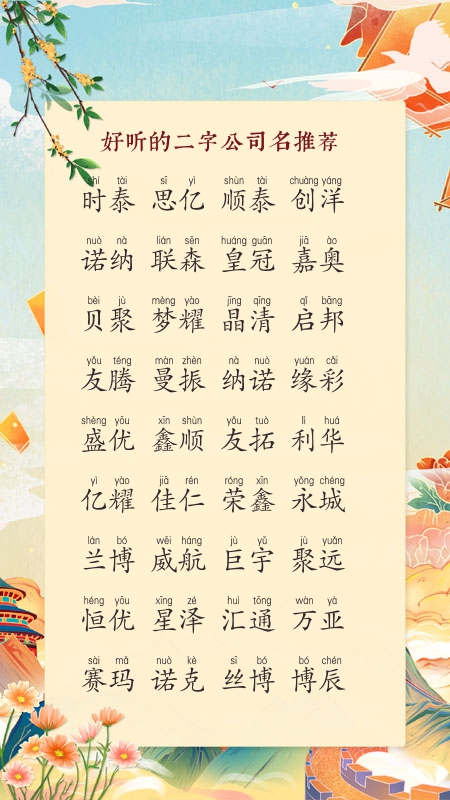 好听的二字公司名推荐
shí tài sī yì shùn tài chuàng yáng
时泰 思亿 顺泰 创洋
nuò nà lián sēn huáng guān jiā ào
诺纳 联森 皇冠 嘉奥
bèi jù mèng yào jīng qīng qǐ bāng
贝聚 梦耀 晶清 启邦
yǒu téng màn zhèn nà nuò yuán cǎi
友腾 曼振 纳诺 缘彩
shèng yōu xīn shùn yǒu tuò lì huá
盛优 鑫顺 友拓 利华
yì yào jiā rén róng xīn yǒng chéng
亿耀 佳仁 荣鑫 永城
lán bó wēi háng jù yǔ jù yuǎn
兰博 威航 巨宇 聚远
héng yōu xīng zé huì tōng wàn yà
恒优 星泽 汇通 万亚
sài mǎ nuò kè sī bó bó chén
赛玛 诺克 丝博 博辰